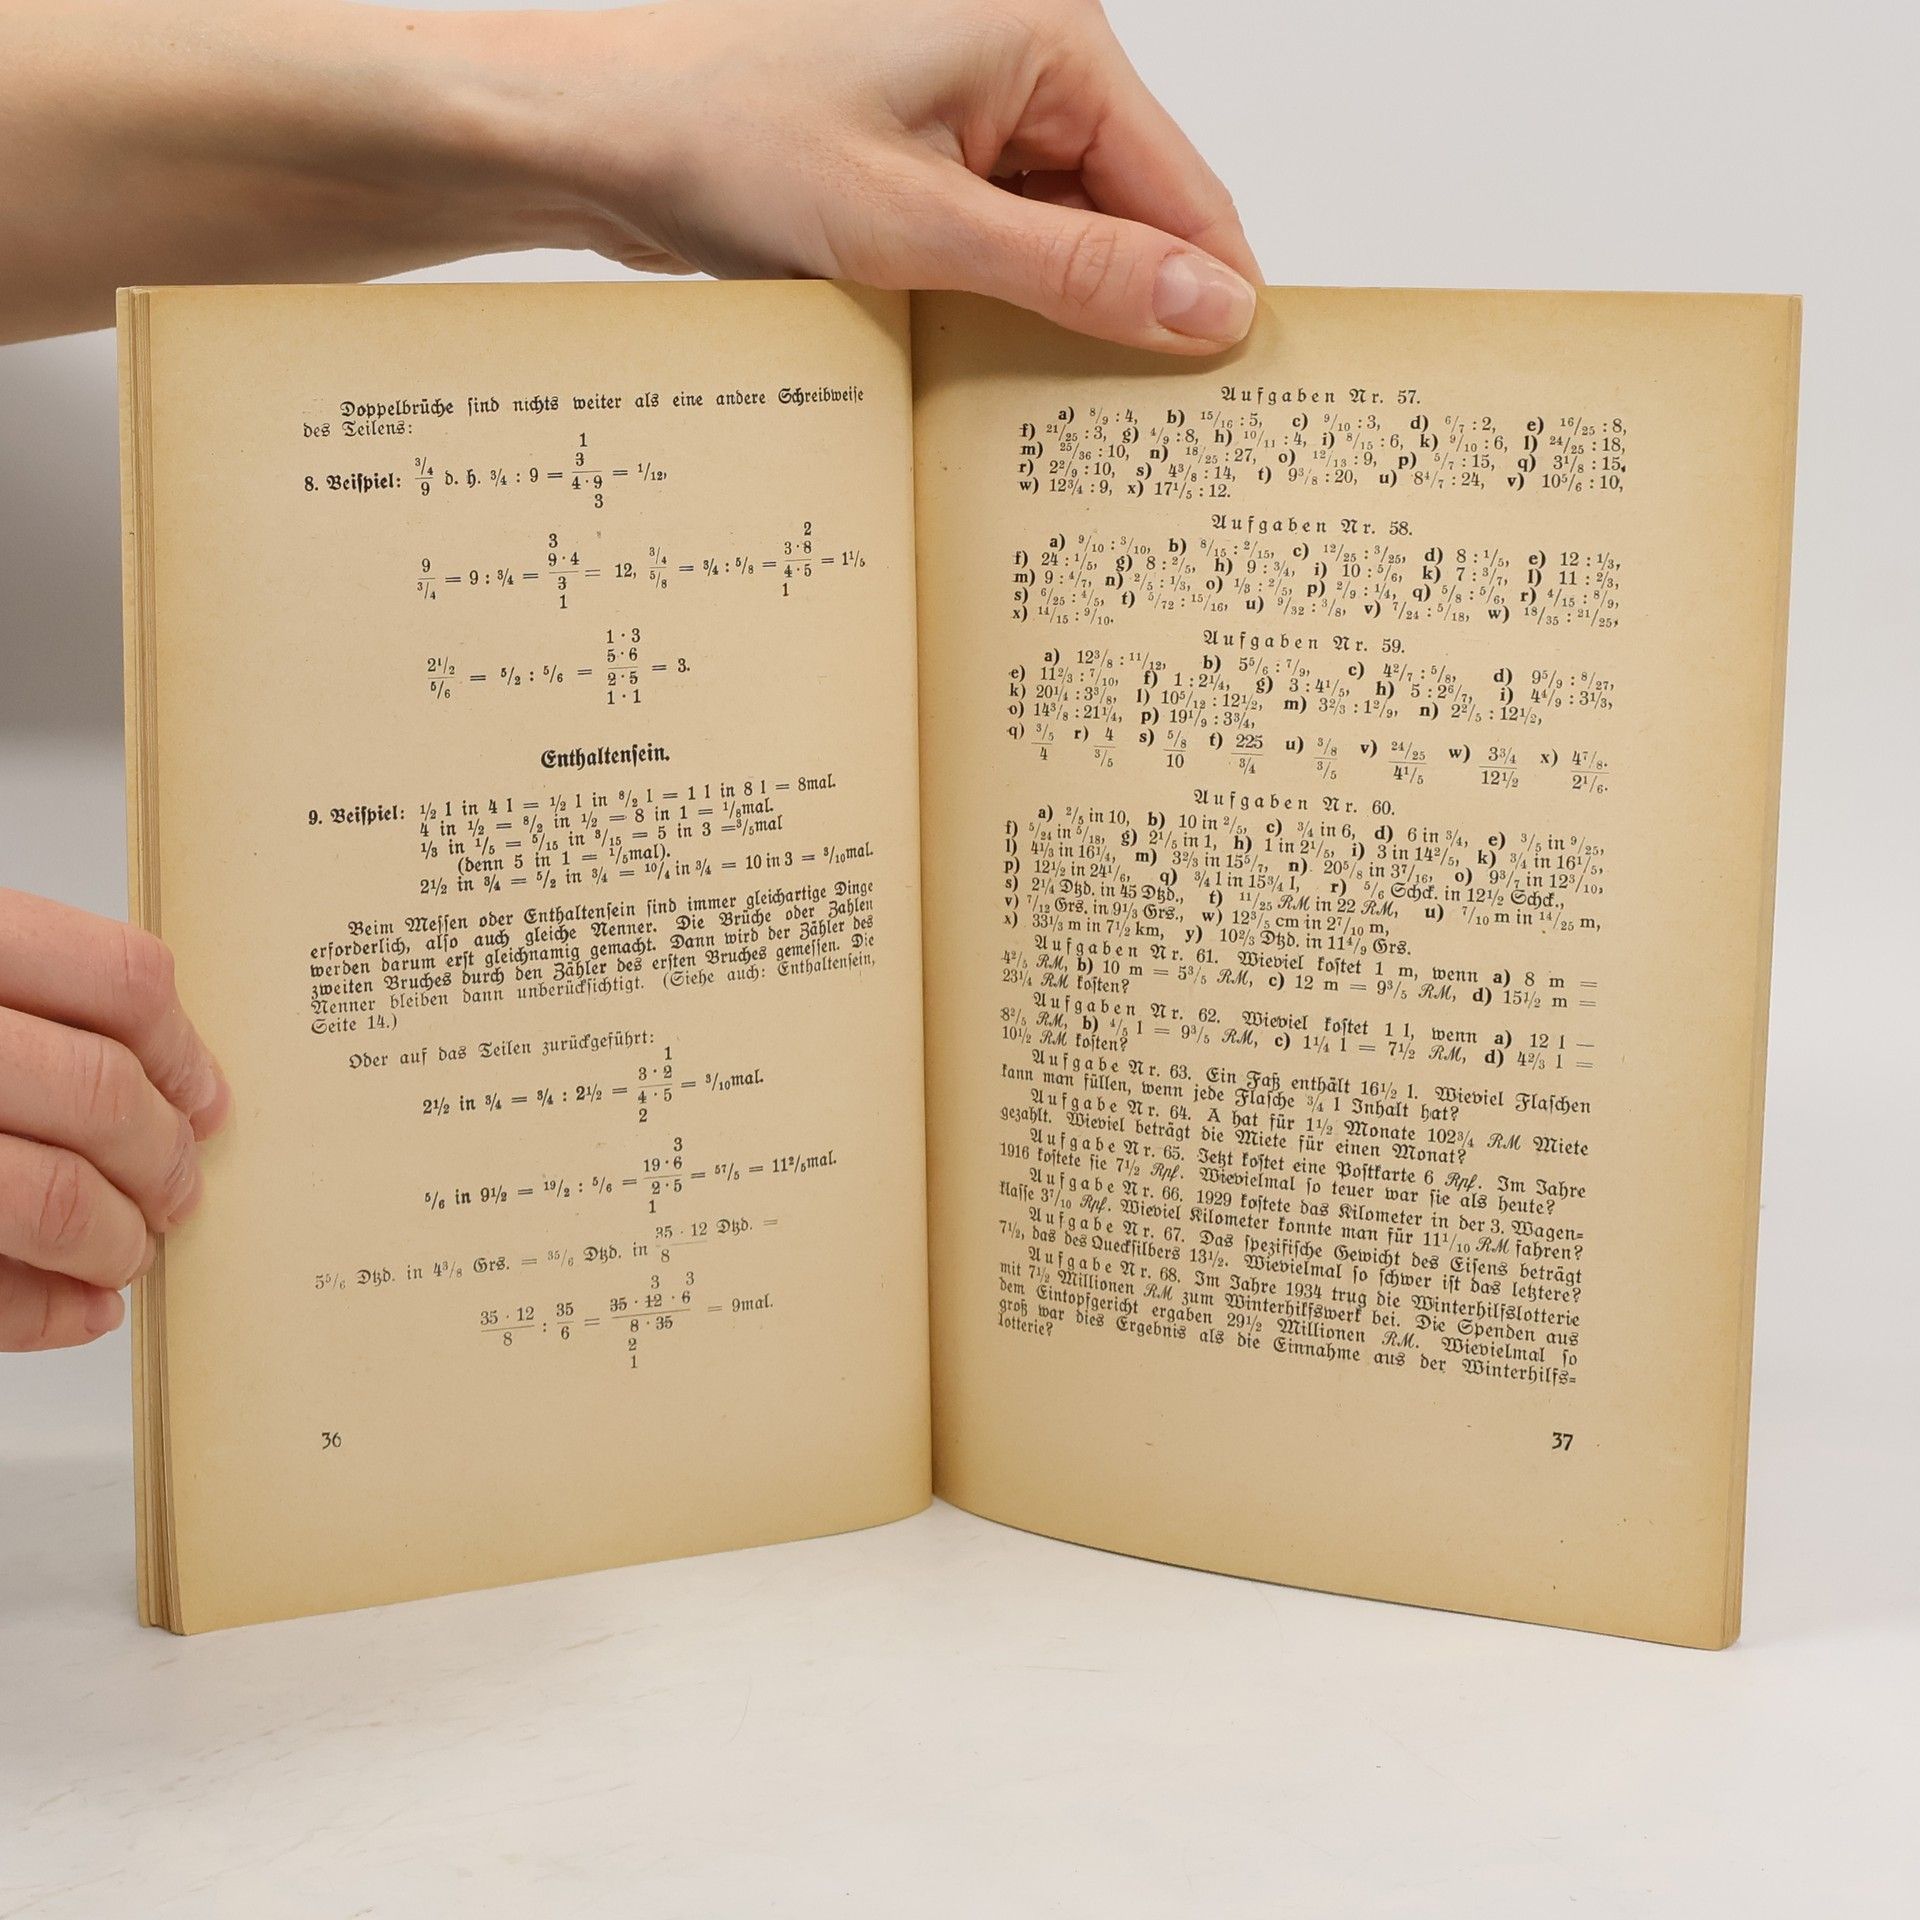 Doppelbrüche sind nichts weiter als eine andere Schreibweise
des Teilens:
1
3
8. Beispiel: ¾/9 d. h. ¾ : 9 = 3/(4 · 9) = 1/12,
3
3 2
9/¾ = 9 : ¾ = (9 · 4)/3 = 12, ¾/⅝ = ¾ : 5/8 = (3 · 8)/(4 · 5) = 1 1/5
1 1
1 · 3
2½/⅚ = 5/2 : 5/6 = (5 · 6)/(2 · 5) = 3.
1 · 1
Enthaltensein.
9. Beispiel: ½ l in 4 l = ½ l in 8/2 l = 1 l in 8 l = 8mal.
4 in ½ = 8/2 in ½ = 8 in 1 = 1/8mal.
⅓ in 1/5 = 5/15 in 3/15 = 5 in 3 = 3/5mal
(denn 5 in 1 = 1/5mal).
2½ in ¾ = 5/2 in ¾ = 10/4 in ¾ = 10 in 3 = 3/10mal.
Beim Messen oder Enthaltensein sind immer gleichartige Dinge
erforderlich, also auch gleiche Nenner. Die Brüche oder Zahlen
werden darum erst gleichnamig gemacht. Dann wird der Zähler des
zweiten Bruches durch den Zähler des ersten Bruches gemessen. Die
Nenner bleiben dann unberücksichtigt. (Siehe auch: Enthaltensein,
Seite 14.)
Oder auf das Teilen zurückgeführt:
1
2½ in ¾ = ¾ : 2½ = (3 · 2)/(4 · 5) = 3/10mal.
2
3
5/6 in 9½ = 19/2 : 5/6 = (19 · 6)/(2 · 5) = 57/5 = 11 2/5mal.
1
5 5/6 Dtzd. in 4 3/8 Grs. = 35/6 Dtzd. in (35 · 12)/8 Dtzd. =
3 3
(35 · 12)/8 : 35/6 = (35 · 12 · 6)/(8 · 35) = 9mal.
2
1
36
Aufgaben Nr. 57.
a) 8/9 : 4, b) 15/16 : 5, c) 9/10 : 3, d) 6/7 : 2, e) 16/25 : 8,
f) 21/25 : 3, g) 4/9 : 8, h) 10/11 : 4, i) 8/15 : 6, k) 9/10 : 6, l) 24/25 : 18,
m) 25/36 : 10, n) 18/25 : 27, o) 12/13 : 9, p) 5/7 : 15, q) 3 1/8 : 15,
r) 2 2/9 : 10, s) 4 3/8 : 14, t) 9 3/8 : 20, u) 8 4/7 : 24, v) 10 5/6 : 10,
w) 12¾ : 9, x) 17 1/5 : 12.
Aufgaben Nr. 58.
a) 9/10 : 3/10, b) 8/15 : 2/15, c) 12/25 : 3/25, d) 8 : 1/5, e) 12 : ⅓,
f) 24 : 1/5, g) 8 : 2/5, h) 9 : ¾, i) 10 : 5/6, k) 7 : 3/7, l) 11 : ⅔,
m) 9 : 4/7, n) 2/5 : ⅓, o) ⅓ : 2/5, p) 2/9 : ¼, q) 5/8 : 5/6, r) 4/15 : 8/9,
s) 6/25 : 4/5, t) 5/72 : 15/16, u) 9/32 : 3/8, v) 7/24 : 5/18, w) 18/35 : 21/25,
x) 14/15 : 9/10.
Aufgaben Nr. 59.
a) 12 3/8 : 11/12, b) 5 5/6 : 7/9, c) 4 2/7 : 5/8, d) 9 5/9 : 8/27,
e) 11⅔ : 7/10, f) 1 : 2¼, g) 3 : 4 1/5, h) 5 : 2 6/7, i) 4 4/9 : 3⅓,
k) 20¼ : 3 3/8, l) 10 5/12 : 12½, m) 3⅔ : 1 2/9, n) 2 2/5 : 12½,
o) 14 3/8 : 21¼, p) 19 1/9 : 3¾,
q) (3/5)/4 r) 4/(3/5) s) (5/8)/10 t) 225/¾ u) (3/8)/(3/5) v) (24/25)/(4 1/5) w) 3¾/12½ x) (4 7/8)/(2 1/6).
Aufgaben Nr. 60.
a) 2/5 in 10, b) 10 in 2/5, c) ¾ in 6, d) 6 in ¾, e) 3/5 in 9/25,
f) 5/24 in 5/18, g) 2 1/5 in 1, h) 1 in 2 1/5, i) 3 in 14 2/5, k) ¾ in 16 1/5,
l) 4⅓ in 16¼, m) 3⅔ in 15 5/7, n) 20 5/8 in 37/16, o) 9 3/7 in 12 3/10,
p) 12½ in 24 1/6, q) ¾ l in 15¾ l, r) 5/6 Schck. in 12½ Schck.,
s) 2¼ Dtzd. in 45 Dtzd., t) 11/25 RM in 22 RM, u) 7/10 m in 14/25 m,
v) 7/12 Grs. in 9⅓ Grs., w) 12 3/5 cm in 2 7/10 m,
x) 33⅓ m in 7½ km, y) 10⅔ Dtzd. in 11 4/9 Grs.
Aufgaben Nr. 61. Wieviel kostet 1 m, wenn a) 8 m =
4 2/5 RM, b) 10 m = 5 3/5 RM, c) 12 m = 9 3/5 RM, d) 15½ m =
23¼ RM kosten?
Aufgaben Nr. 62. Wieviel kostet 1 l, wenn a) 12 l =
8 2/5 RM, b) 4/5 l = 9 3/5 RM, c) 1¼ l = 7½ RM, d) 4⅔ l =
10½ RM kosten?
Aufgabe Nr. 63. Ein Faß enthält 16½ l. Wieviel Flaschen
kann man füllen, wenn jede Flasche ¾ l Inhalt hat?
Aufgabe Nr. 64. A hat für 1½ Monate 102¾ RM Miete
gezahlt. Wieviel beträgt die Miete für einen Monat?
Aufgabe Nr. 65. Jetzt kostet eine Postkarte 6 Rpf. Im Jahre
1916 kostete sie 7½ Rpf. Wievielmal so teuer war sie als heute?
Aufgabe Nr. 66. 1929 kostete das Kilometer in der 3. Wagen-
klasse 3 7/10 Rpf. Wieviel Kilometer konnte man für 11 1/10 RM fahren?
Aufgabe Nr. 67. Das spezifische Gewicht des Eisens beträgt
7½, das des Quecksilbers 13½. Wievielmal so schwer ist das letztere?
Aufgabe Nr. 68. Im Jahre 1934 trug die Winterhilfslotterie
mit 7½ Millionen RM zum Winterhilfswerk bei. Die Spenden aus
dem Eintopfgericht ergaben 29½ Millionen RM. Wievielmal so
groß war dies Ergebnis als die Einnahme aus der Winterhilfs-
lotterie?
37